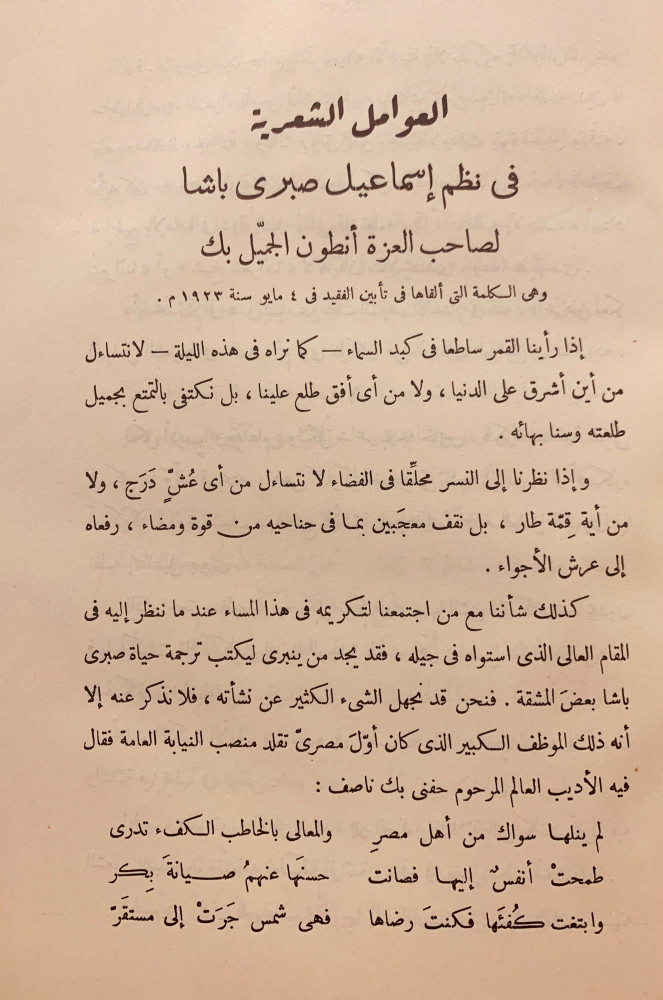 العوامل الشعرية
فى نظم إسماعيل صبرى باشا
لصاحب العزة أنطون الجميّل بك
وهى الكلمة التى ألقاها فى تأبين الفقيد فى ٤ مايو سنة ١٩٢٣ م .
إذا رأينا القمر ساطعا فى كبد السماء — كما نراه فى هذه الليلة — لانتساءل
من أين أشرق على الدنيا ، ولا من أى أفق طلع علينا ، بل نكتفى بالتمتع بجميل
طلعته وسنا بهائه .
وإذا نظرنا إلى النسر محلِّقا فى الفضاء لا نتساءل من أى عُشٍّ دَرَج ، ولا
من أية قِمّة طار ، بل نقف معجَبين بما فى جناحيه من قوة ومضاء ، رفعاه
إلى عرش الأجواء .
كذلك شأننا مع من اجتمعنا لتكريمه فى هذا المساء عند ما ننظر إليه فى
المقام العالى الذى استواه فى جيله ، فقد يجد من ينبرى ليكتب ترجمة حياة صبرى
باشا بعضَ المشقة . فنحن قد نجهل الشىء الكثير عن نشأته ، فلا نذكر عنه إلا
أنه ذلك الموظف الكبير الذى كان أوّلَ مصرىّ تقلد منصب النيابة العامة فقال
فيه الأديب العالم المرحوم حفنى بك ناصف :
لم ينلها سواك من أهل مصرِ والمعالى بالخاطب الكفء تدرى
طمحتْ أنفسٌ إليها فصانت حسنَها عنهمُ صيانةَ بِكر
وابتغت كُفئَها فكنتَ رضاها فهى شمس جَرَتْ إلى مستقَرّ